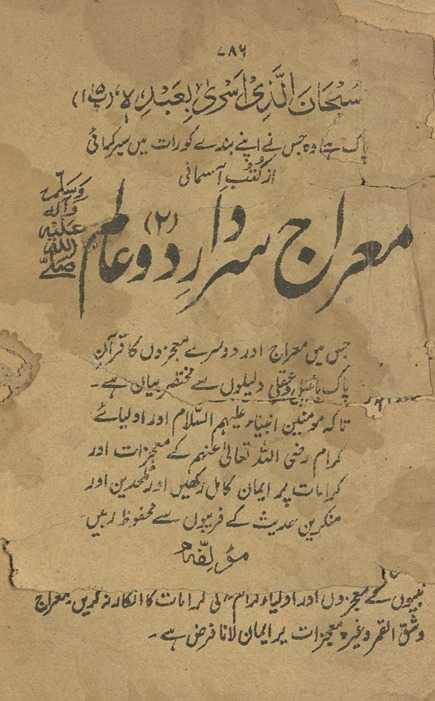 ۷۸۶
سُبْحَانَ الَّذِیْ اَسْرٰی بِعَبْدِہٖ (پ ۱۵)
پاک ہے وہ جس نے اپنے بندے کو رات میں سیر کرائی
از کتب آسمانی
معراج سردارِ دو عالم (۲)
صلی اللہ علیہ وآلہ وسلم
جس میں معراج اور دوسرے معجزوں کا قرآن
پاک بائیبل و عقلی دلیلوں سے مختصر بیان ہے۔
تاکہ مومنین انبیاء علیہم السّلام اور اولیائے
کرام رضی اللہ تعالیٰ عنہم کے معجزات اور
کرامات پر ایمان کامل رکھیں اور ملحدین اور
منکرین حدیث کے فریبوں سے محفوظ رہیں۔
مؤلفہ
نبیوں کے معجزوں اور اولیاء کرام کی کرامات کا انکار نہ کریں، معراج
و شق القمر وغیرہ معجزات پر ایمان لانا فرض ہے۔